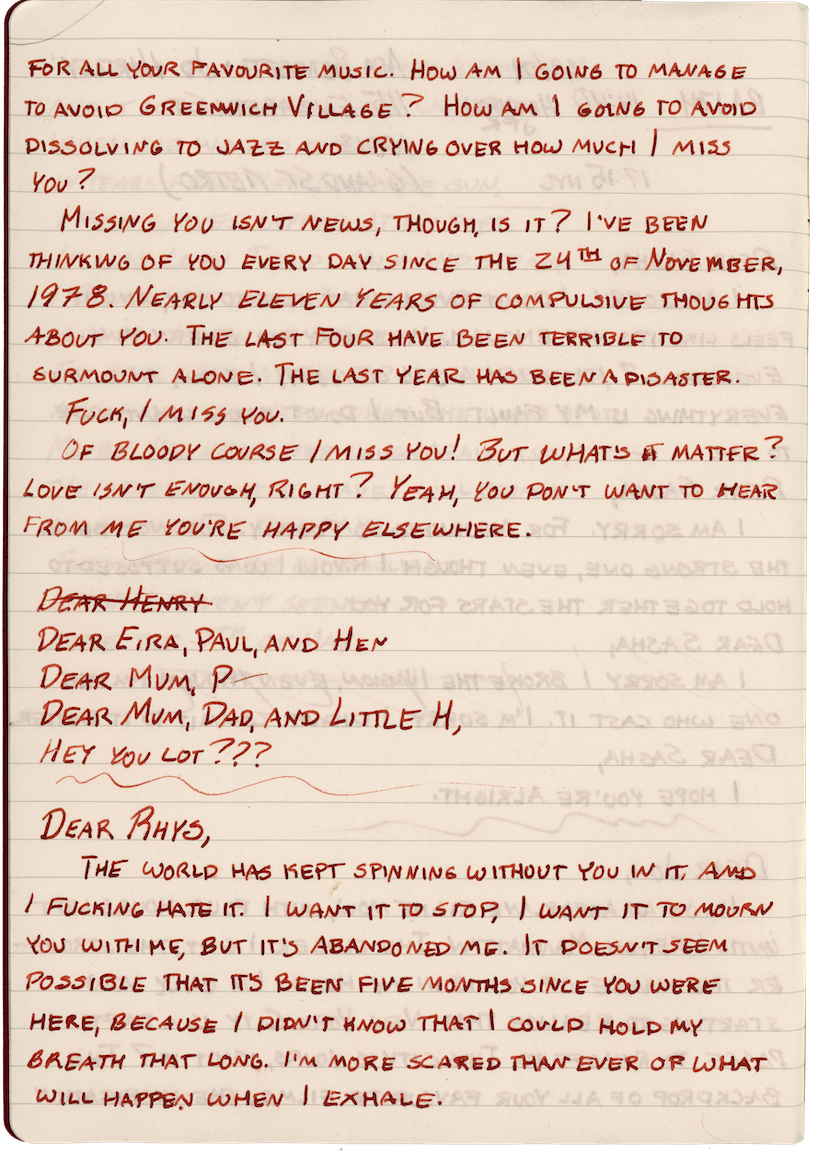 FOR ALL YOUR FAVOURITE MUSIC. HOW AM I GOING TO MANAGE
TO AVOID GREENWICH VILLAGE? HOW AM I GOING TO AVOID
DISSOLVING TO JAZZ AND CRYING OVER HOW MUCH I MISS
YOU?
MISSING YOU ISN'T NEWS, THOUGH, IS IT? I'VE BEEN
THINKING OF YOU EVERY DAY SINCE THE 24TH OF NOVEMBER,
1978. NEARLY ELEVEN YEARS OF COMPULSIVE THOUGHTS
ABOUT YOU. THE LAST FOUR HAVE BEEN TERRIBLE TO
SURMOUNT ALONE. THE LAST YEAR HAS BEEN A DISASTER.
FUCK, I MISS YOU.
OF BLOODY COURSE I MISS YOU! BUT WHAT'S IT MATTER?
LOVE ISN'T ENOUGH, RIGHT? YEAH, YOU DON'T WANT TO HEAR
FROM ME YOU'RE HAPPY ELSEWHERE.
DEAR HENRY
DEAR EIRA, PAUL, AND HEN
DEAR MUM, P
DEAR MUM, DAD, AND LITTLE H,
HEY YOU LOT???
DEAR RHYS,
THE WORLD HAS KEPT SPINNING WITHOUT YOU IN IT, AND
I FUCKING HATE IT. I WANT IT TO STOP, I WANT IT TO MOURN
YOU WITH ME, BUT IT'S ABANDONED ME. IT DOESN'T SEEM
POSSIBLE THAT IT'S BEEN FIVE MONTHS SINCE YOU WERE
HERE, BECAUSE I DIDN'T KNOW THAT I COULD HOLD MY
BREATH THAT LONG. I'M MORE SCARED THAN EVER OF WHAT
WILL HAPPEN WHEN I EXHALE.